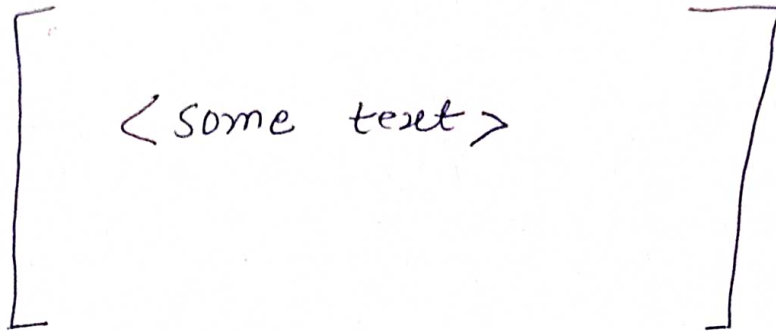 [ <some text> ]